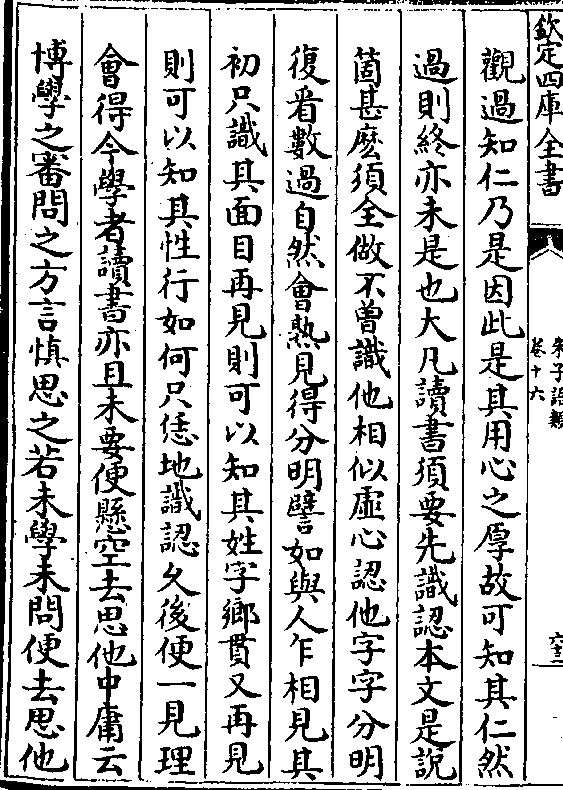 欽定四庫全書
朱子語類
卷十六
六十二
觀過知仁乃是因此是其用心之厚故可知其仁然
過則終亦未是也大凡讀書須要先識認本文是說
箇甚麽須全做不曾識他相似虛心認他字字分明
復看數過自然會熟見得分明譬如與人乍相見其
初只識其面目再見則可以知其姓字鄉貫又再見
則可以知其性行如何只恁地識認乆後便一見理
會得今學者讀書亦且未要便懸空去思他中庸云
博學之審問之方言慎思之若未學未問便去思他